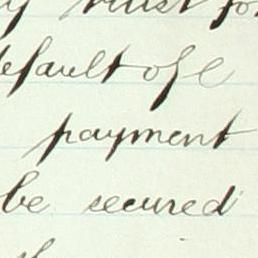 trust for
default of
payment
be secured